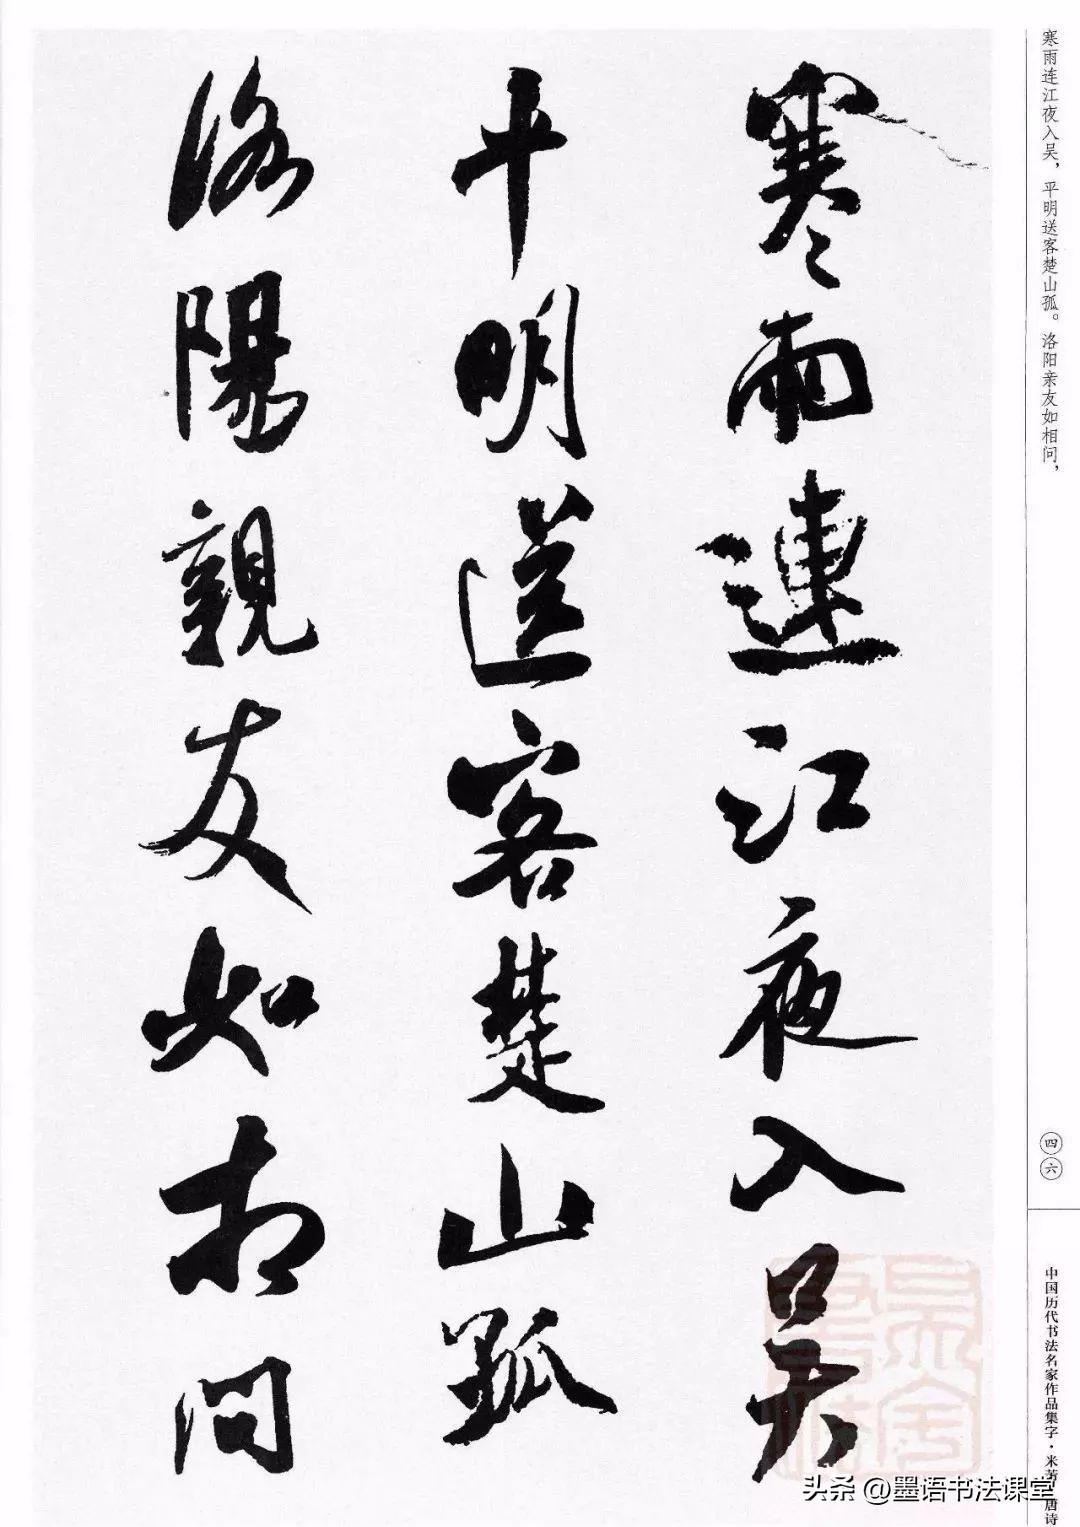 寒雨連江夜入吴
平明送客楚山孤
洛陽親友如相问
寒雨连江夜入吴，平明送客楚山孤。洛阳亲友如相问，
四六
中国历代书法名家作品集字·米芾 唐诗
头条 @墨语书法课堂